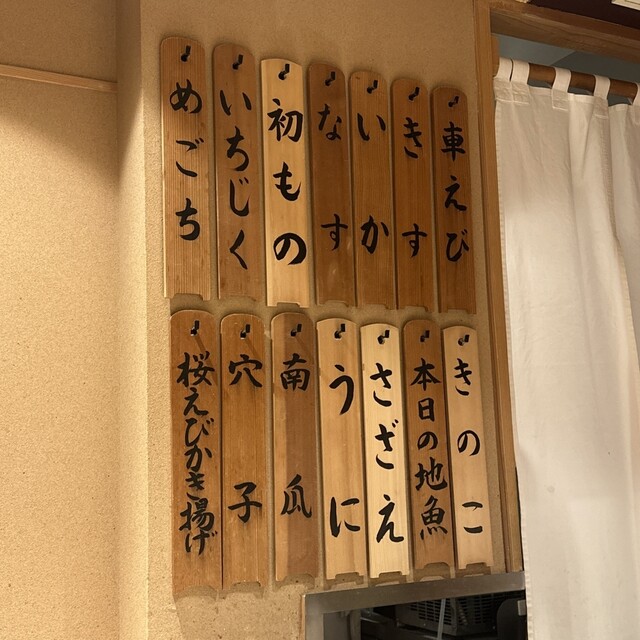 車えび
きす
いか
なす
初もの
いちじく
めごち
きのこ
本日の地魚
さざえ
うに
南瓜
穴子
桜えびかき揚げ